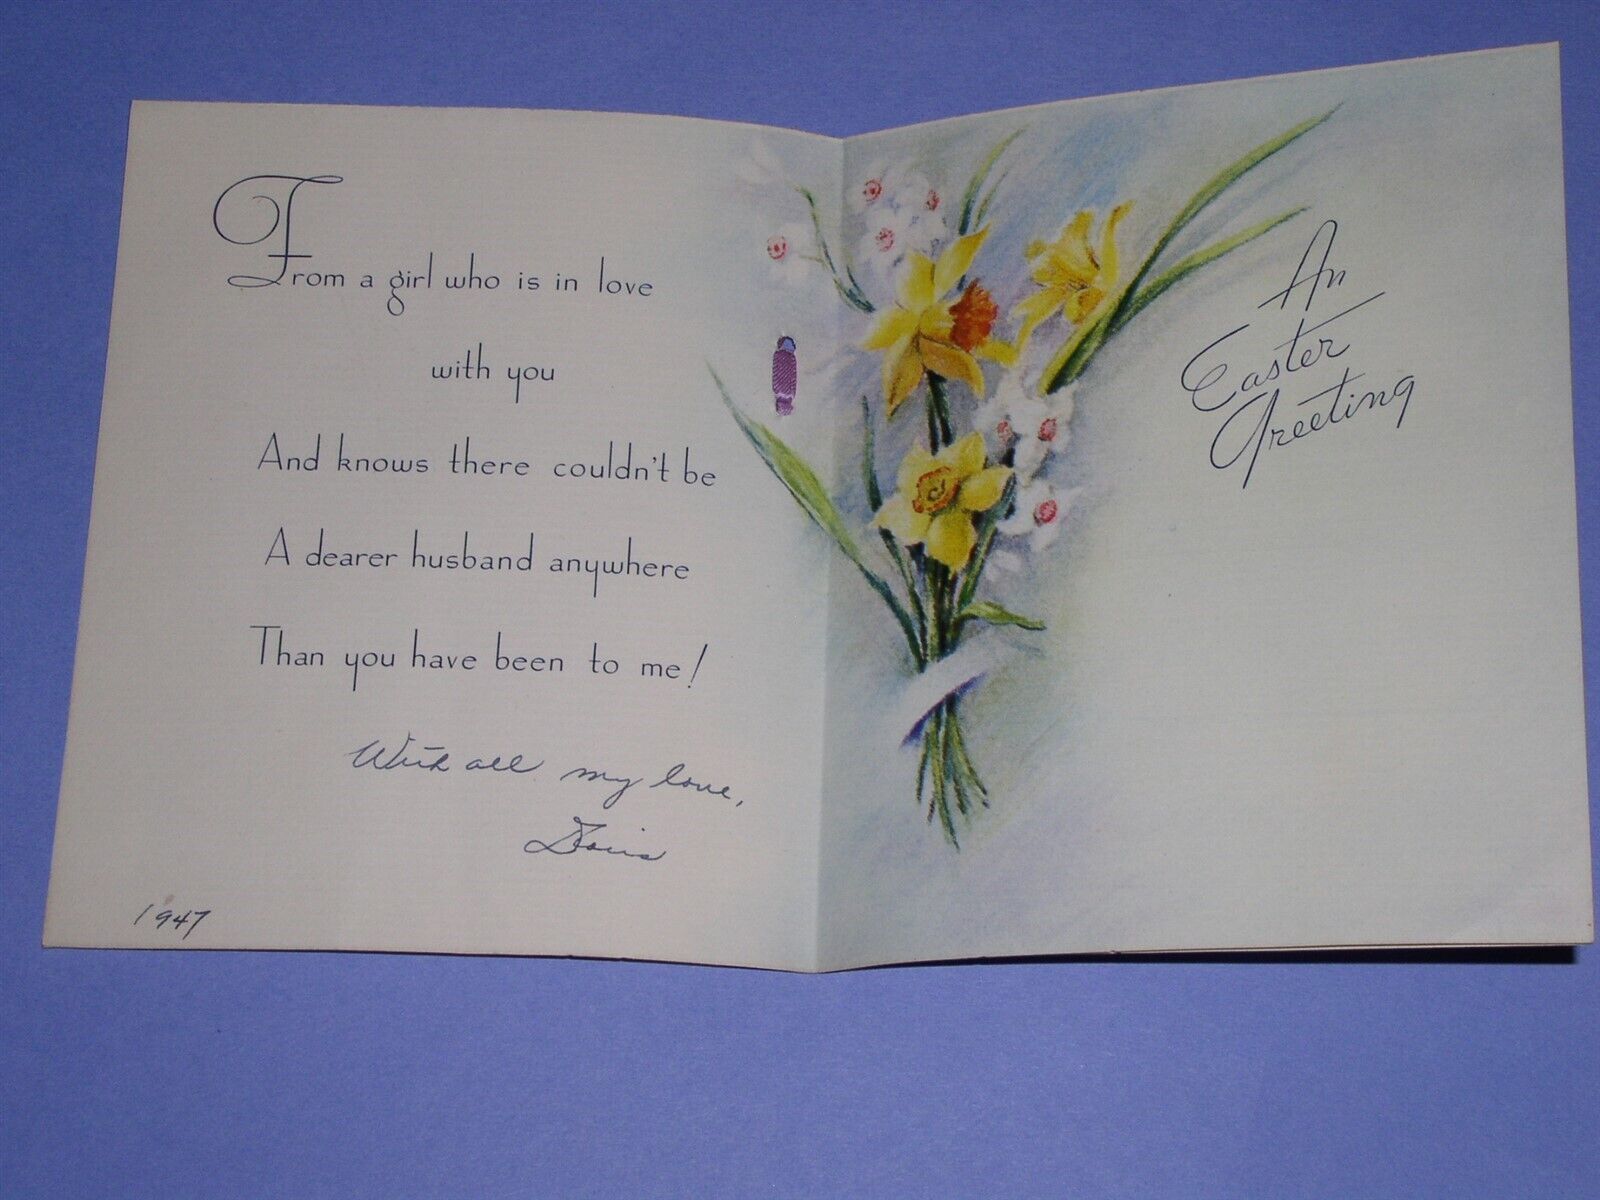 From a girl who is in love
with you
And knows there couldn't be
A dearer husband anywhere
Than you have been to me!
With all my love,
Doris
1947
An
Easter
Greeting